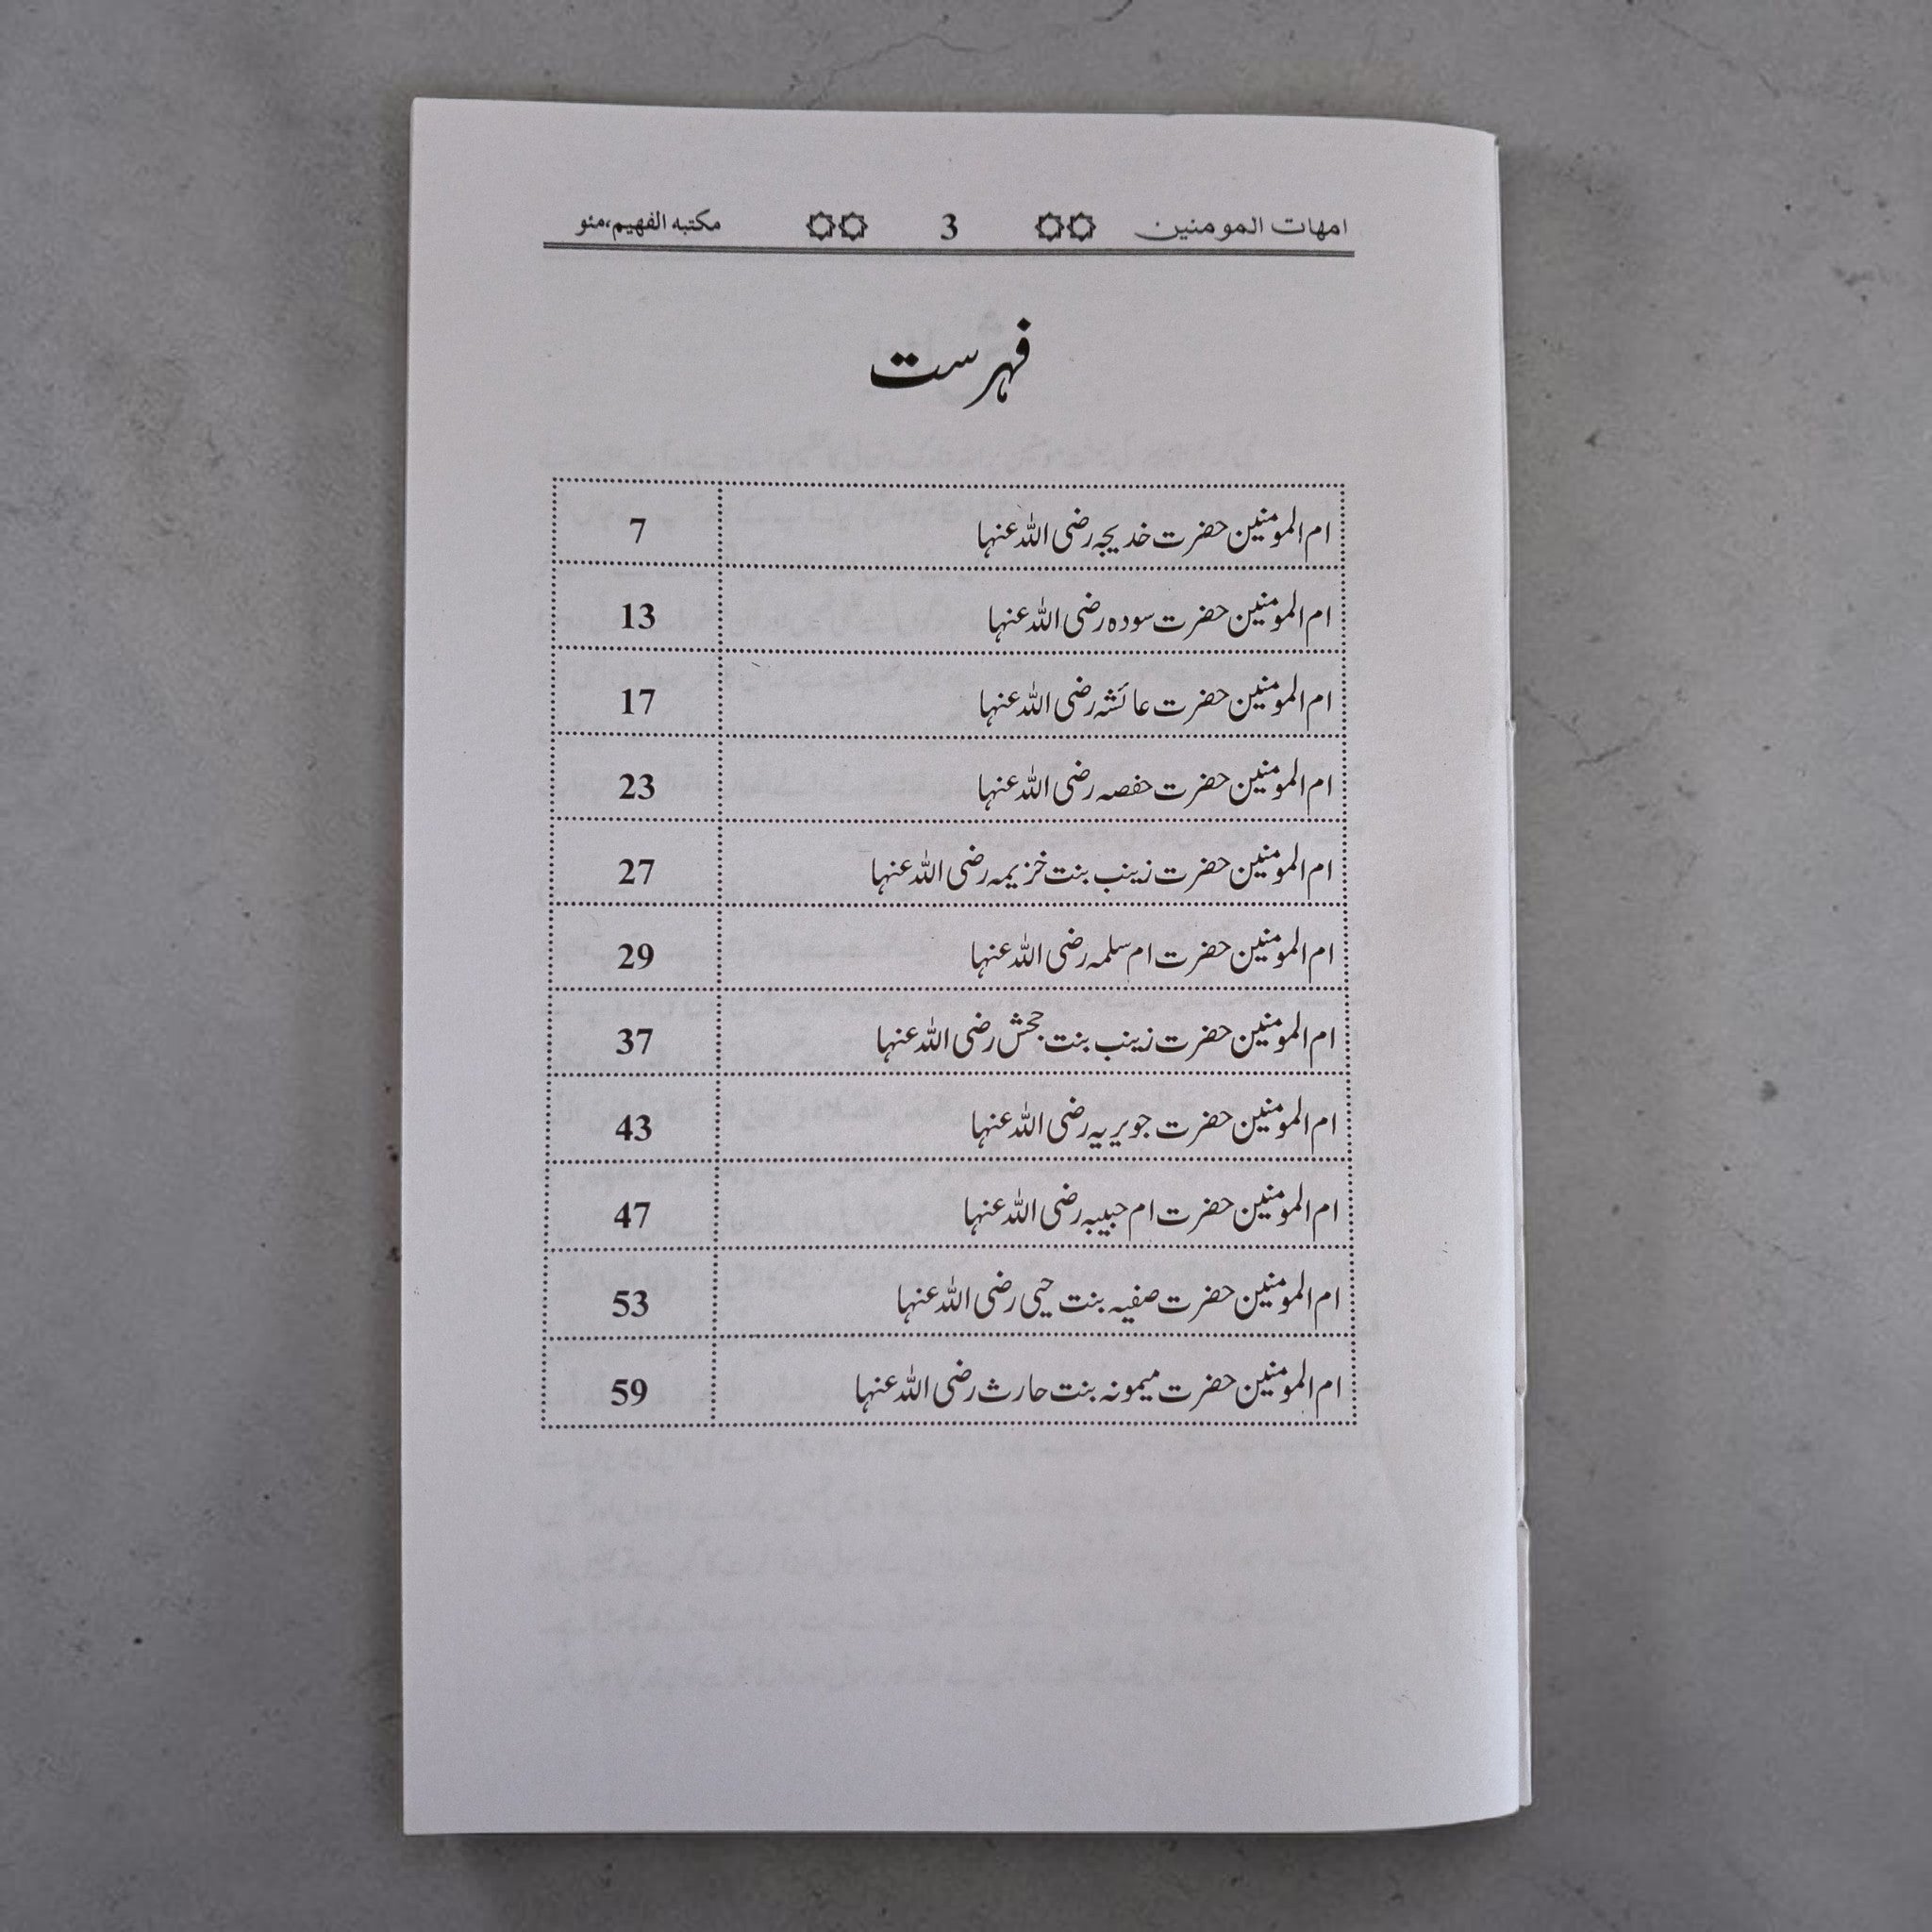 امهات المومنین 3 مکتبه الفهیم،مئو
فہرست
ام المومنین حضرت خدیجہ رضی اللہ عنہا 7
ام المومنین حضرت سودہ رضی اللہ عنہا 13
ام المومنین حضرت عائشہ رضی اللہ عنہا 17
ام المومنین حضرت حفصہ رضی اللہ عنہا 23
ام المومنین حضرت زینب بنت خزیمہ رضی اللہ عنہا 27
ام المومنین حضرت ام سلمہ رضی اللہ عنہا 29
ام المومنین حضرت زینب بنت جحش رضی اللہ عنہا 37
ام المومنین حضرت جویریہ رضی اللہ عنہا 43
ام المومنین حضرت ام حبیبہ رضی اللہ عنہا 47
ام المومنین حضرت صفیہ بنت حیی رضی اللہ عنہا 53
ام المومنین حضرت میمونہ بنت حارث رضی اللہ عنہا 59